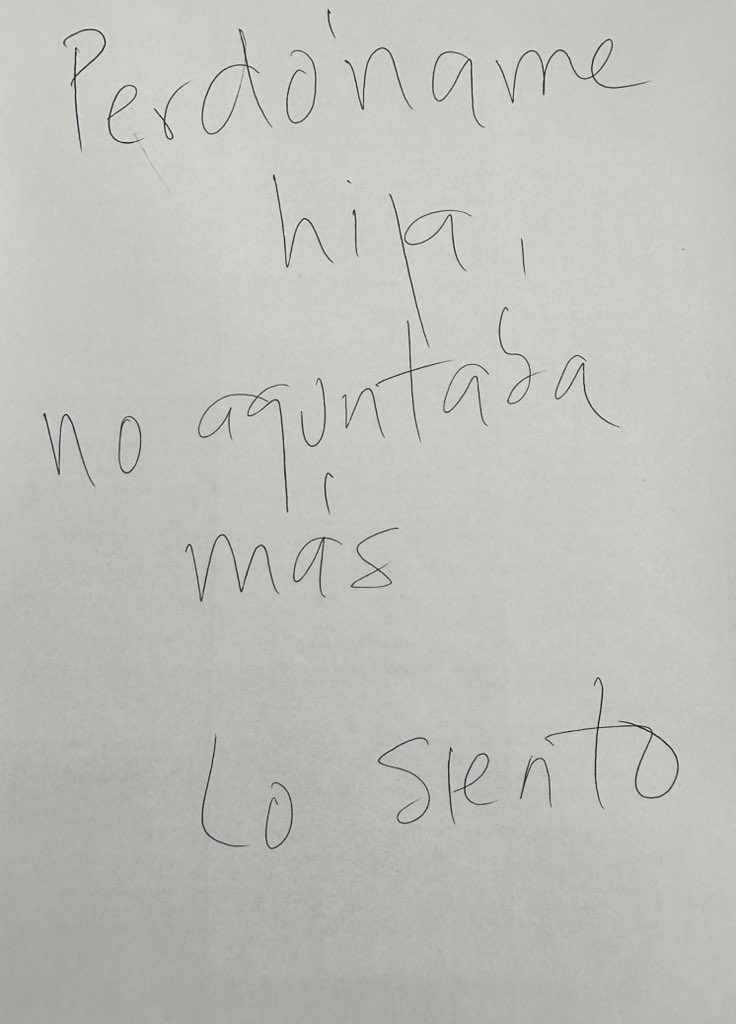 Perdóname
hija,
no aguntaba
más
Lo siento